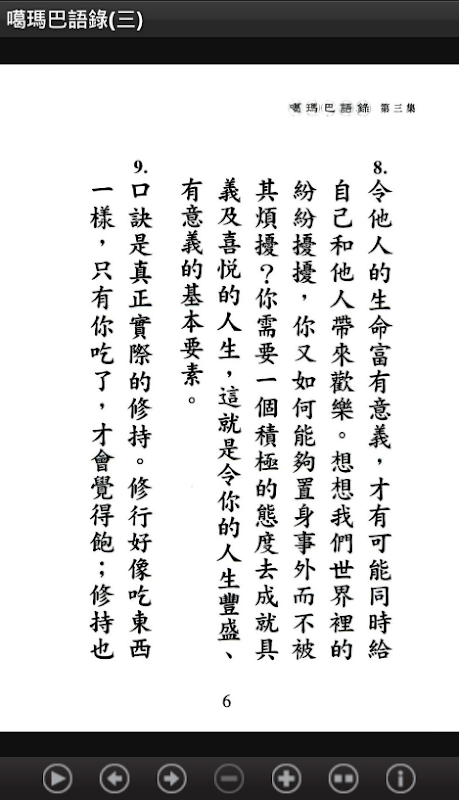 噶瑪巴語錄(三)
噶瑪巴語錄 第三集
8.
令他人的生命富有意義，才有可能同時給
自己和他人帶來歡樂。想想我們世界裡的
紛紛擾擾，你又如何能夠置身事外而不被
其煩擾？你需要一個積極的態度去成就具
義及喜悅的人生，這就是令你的人生豐盛、
有意義的基本要素。
9.
口訣是真正實際的修持。修行好像吃東西
一樣，只有你吃了，才會覺得飽；修持也
6